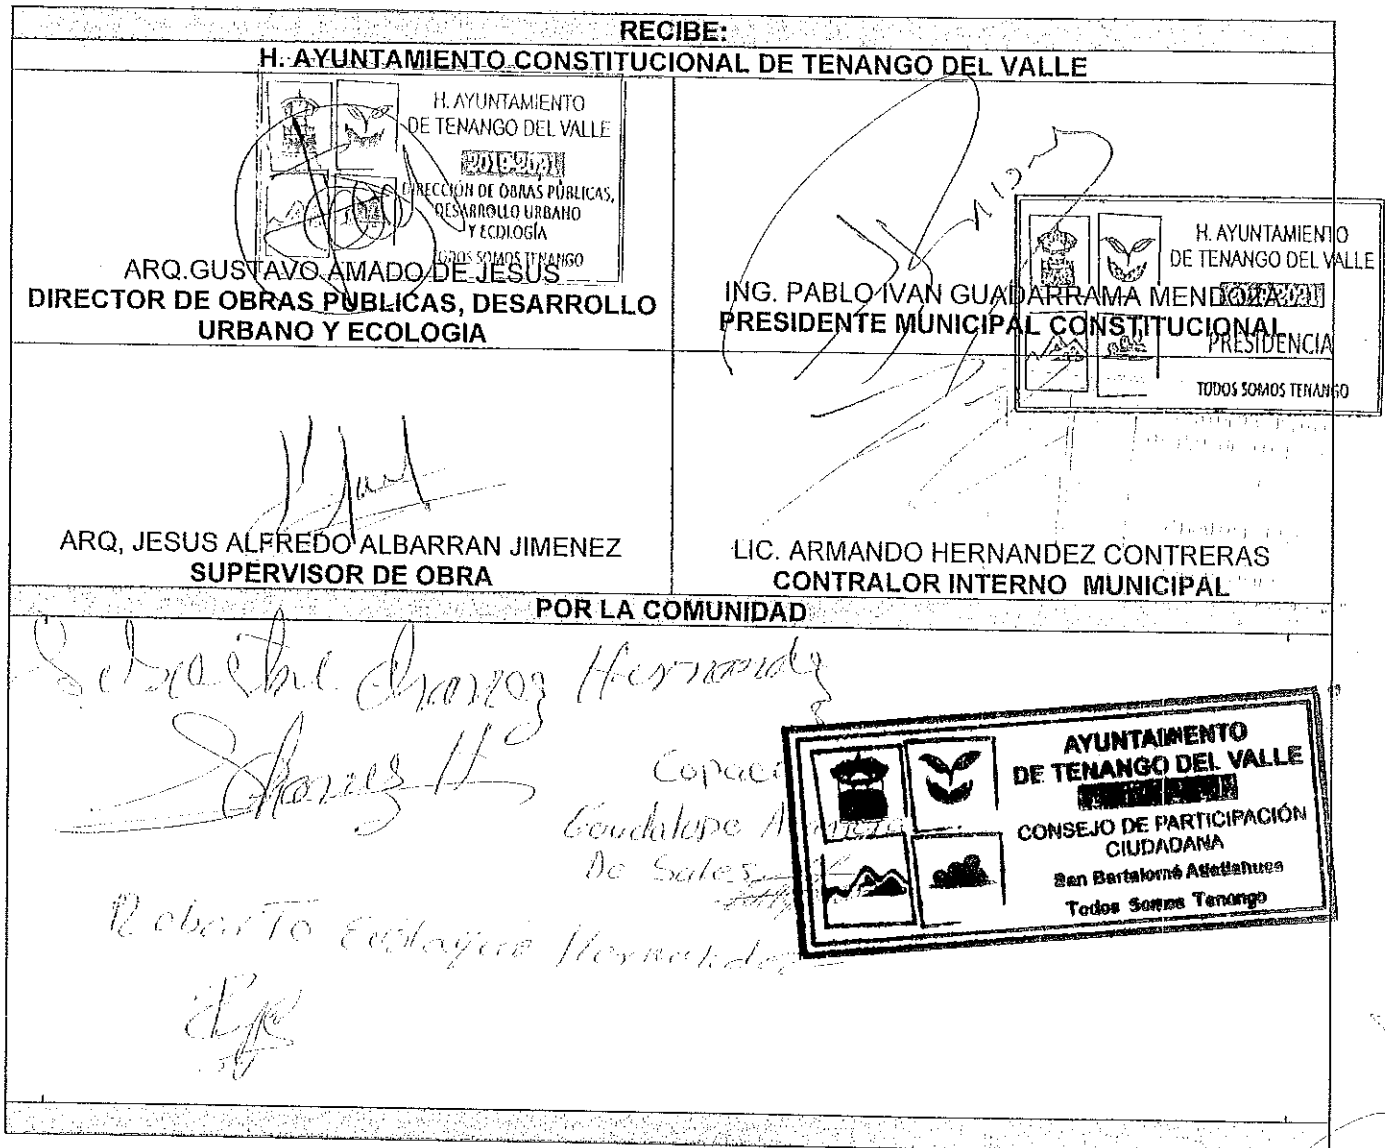 RECIBE:
H. AYUNTAMIENTO CONSTITUCIONAL DE TENANGO DEL VALLE
H. AYUNTAMIENTO
DE TENANGO DEL VALLE
2019-2021
DIRECCIÓN DE OBRAS PÚBLICAS,
DESARROLLO URBANO
Y ECOLOGÍA
TODOS SOMOS TENANGO
ARQ.GUSTAVO AMADO DE JESUS
DIRECTOR DE OBRAS PUBLICAS, DESARROLLO
URBANO Y ECOLOGIA
H. AYUNTAMIENTO
DE TENANGO DEL VALLE
2019-2021
PRESIDENCIA
TODOS SOMOS TENANGO
ING. PABLO IVAN GUADARRAMA MENDOZA
PRESIDENTE MUNICIPAL CONSTITUCIONAL
ARQ, JESUS ALFREDO ALBARRAN JIMENEZ
SUPERVISOR DE OBRA
LIC. ARMANDO HERNANDEZ CONTRERAS
CONTRALOR INTERNO MUNICIPAL
POR LA COMUNIDAD
Hernandez
Guadalupe
De Sales
Roberto Hernandez
AYUNTAMIENTO
DE TENANGO DEL VALLE
CONSEJO DE PARTICIPACIÓN
CIUDADANA
San Bartolomé Atlatlahuca
Todos Somos Tenango